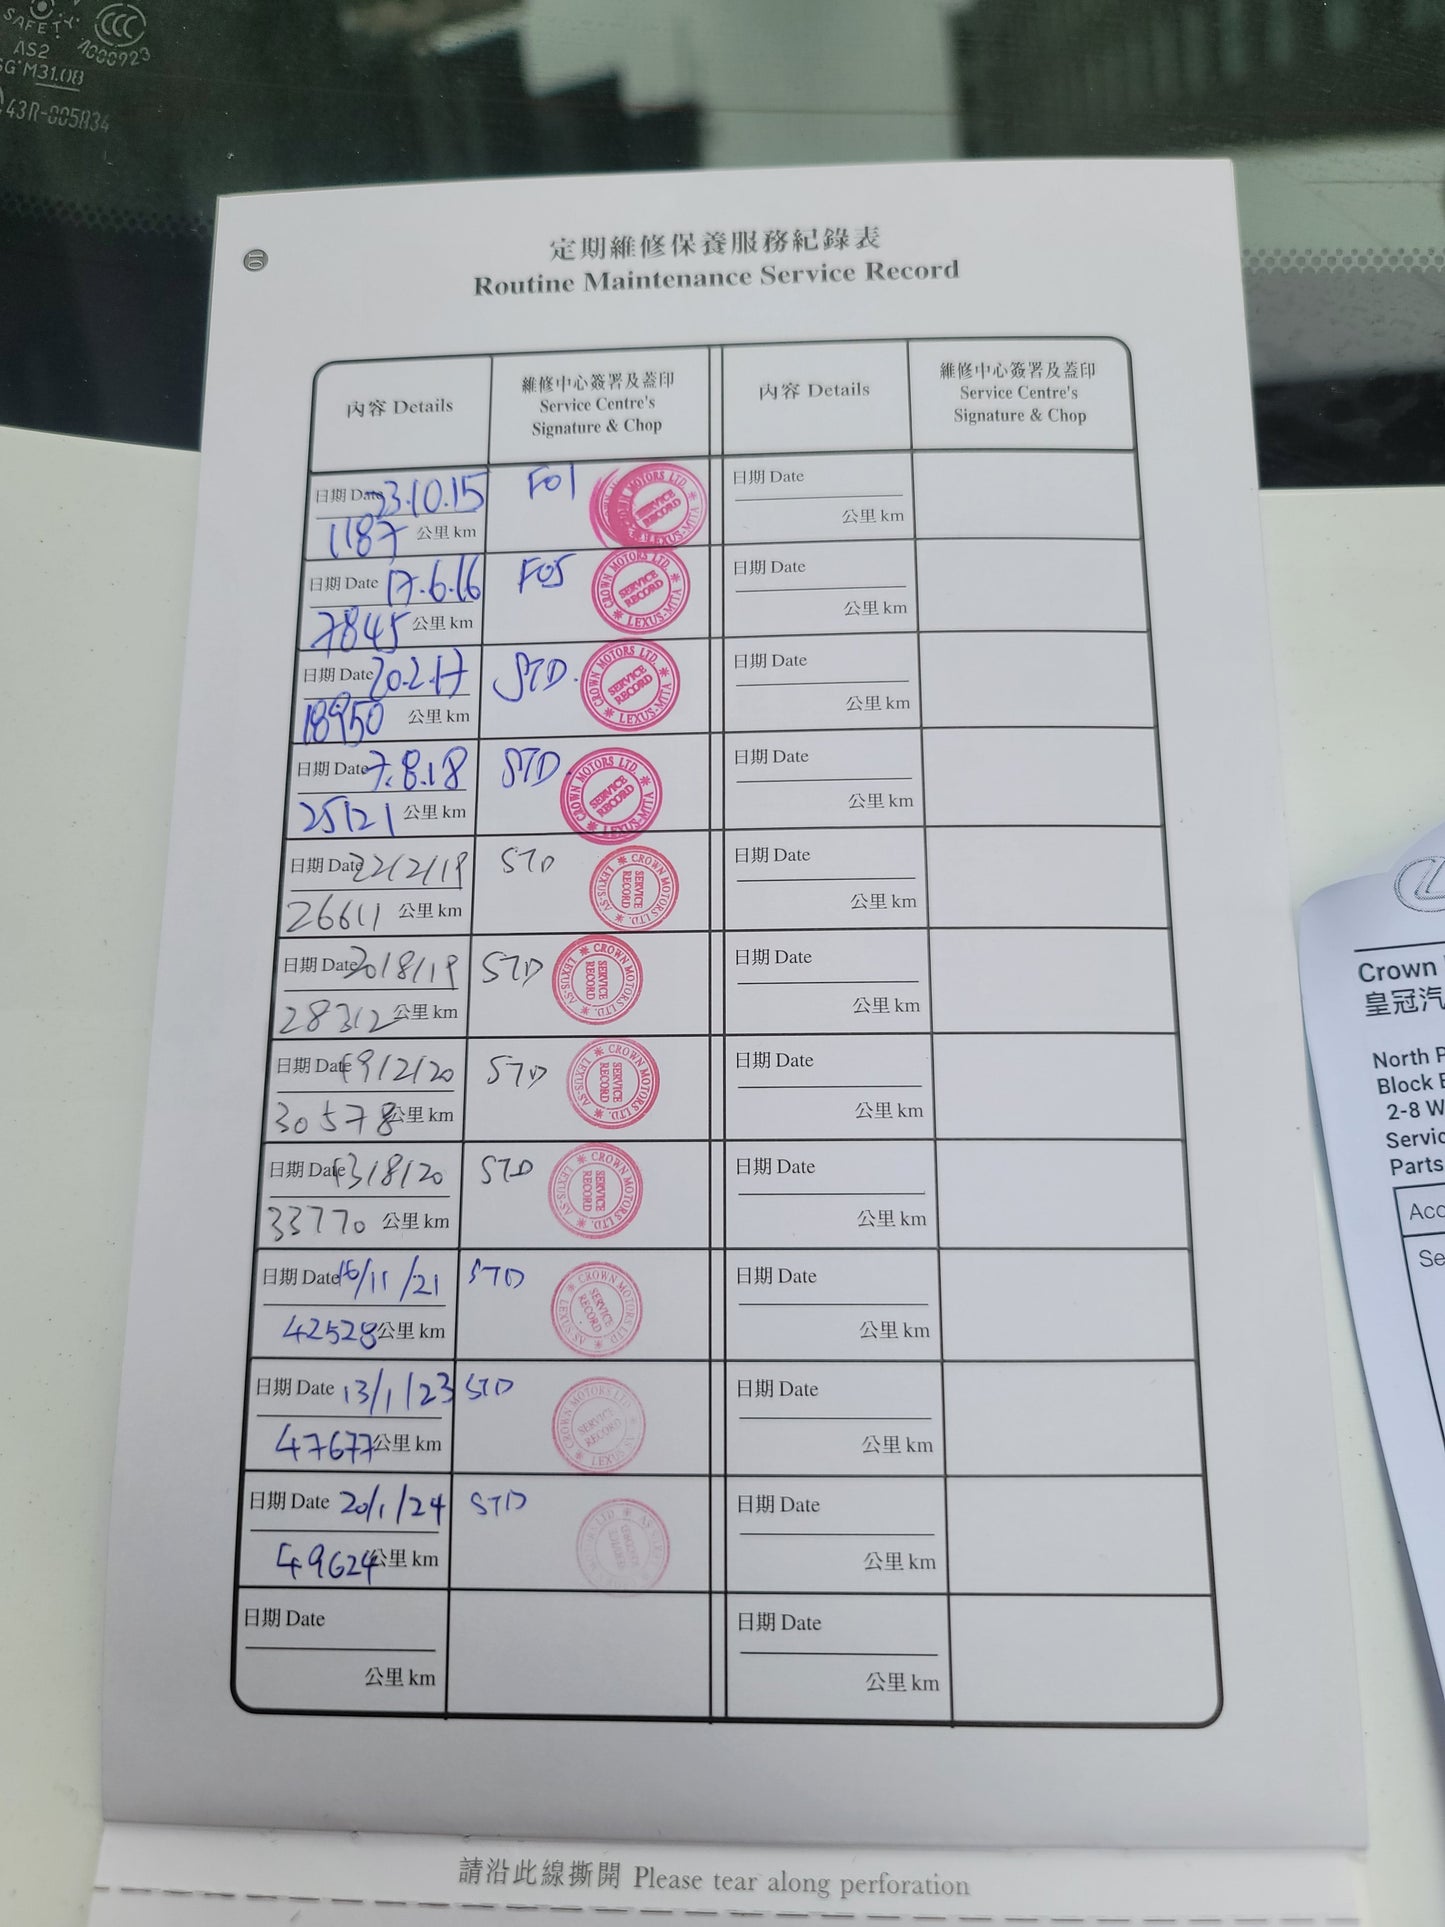 SAFETY
CCC
AS2
A000923
M31.08
43R-005834
10
定期維修保養服務紀錄表
Routine Maintenance Service Record
內容 Details
維修中心簽署及蓋印
Service Centre's
Signature & Chop
內容 Details
維修中心簽署及蓋印
Service Centre's
Signature & Chop
日期 Date 23.10.15 F01 CROWN MOTORS LTD. SERVICE RECORD LEXUS-MITA
1187 公里 km
日期 Date
公里 km
日期 Date 17.6.16 F05 CROWN MOTORS LTD. SERVICE RECORD LEXUS-MITA
7845 公里 km
日期 Date
公里 km
日期 Date 20.2.17 STD. CROWN MOTORS LTD. SERVICE RECORD LEXUS-MITA
18950 公里 km
日期 Date
公里 km
日期 Date 7.8.18 STD. CROWN MOTORS LTD. SERVICE RECORD LEXUS-MITA
25121 公里 km
日期 Date
公里 km
日期 Date 22/2/19 STD CROWN MOTORS LTD. SERVICE RECORD LEXUS-AS
26611 公里 km
日期 Date
公里 km
日期 Date 20/8/19 STD CROWN MOTORS LTD. SERVICE RECORD LEXUS-AS
28312 公里 km
日期 Date
公里 km
日期 Date 19/2/20 STD CROWN MOTORS LTD. SERVICE RECORD LEXUS-AS
30578 公里 km
日期 Date
公里 km
日期 Date 13/8/20 STD CROWN MOTORS LTD. SERVICE RECORD LEXUS-AS
33770 公里 km
日期 Date
公里 km
日期 Date 16/11/21 STD CROWN MOTORS LTD. SERVICE RECORD LEXUS AS
42528 公里 km
日期 Date
公里 km
日期 Date 13/1/23 STD CROWN MOTORS LTD. SERVICE RECORD LEXUS AS
47677 公里 km
日期 Date
公里 km
日期 Date 20/1/24 STD MOTORS LTD SERVICE RECORD
49624 公里 km
日期 Date
公里 km
日期 Date
公里 km
日期 Date
公里 km
請沿此線撕開 Please tear along perforation
Crown
皇冠汽
North P
Block
2-8 W
Servic
Parts
Acc
Se